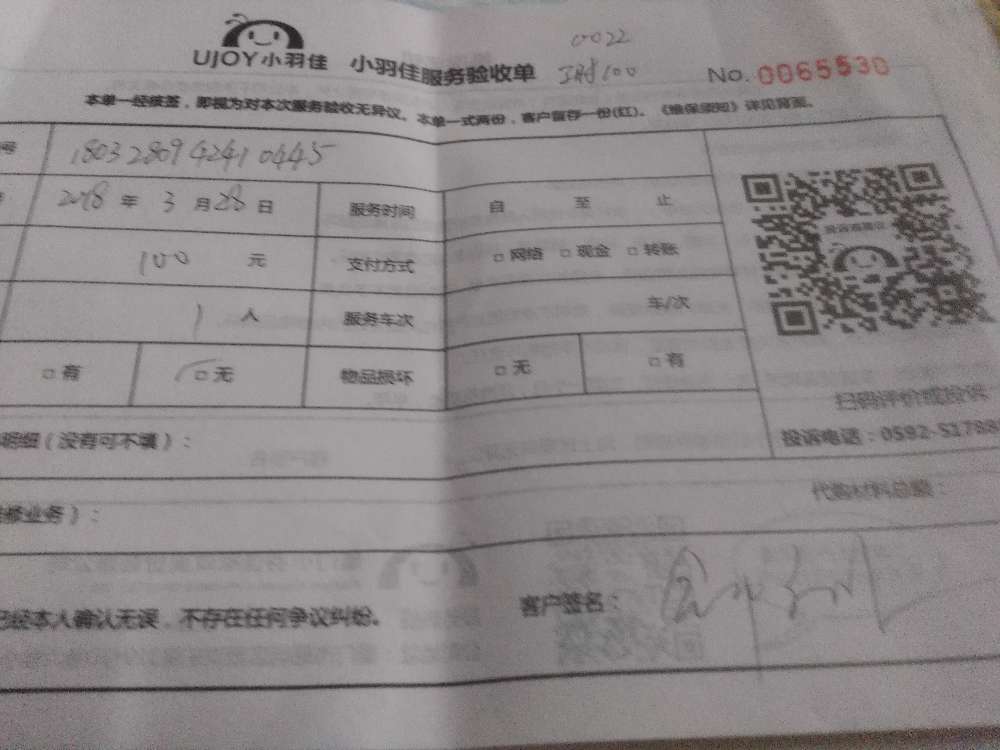 0022
UJOY小羽佳 小羽佳服务验收单 100 No. 0065530
本单一经核签，即视为对本次服务验收无异议。本单一式两份，客户留存一份(红)。《维保须知》详见背面。
号 18032809424410445
2018 年 3 月 28 日 服务时间 自 至 止
100 元 支付方式 □ 网络 □ 现金 □ 转账
1 人 服务车次 车/次
□ 有 □ 无 物品损坏 □ 无 □ 有
扫码评价或投诉
明细（没有可不填）： 投诉电话：0592-51788
代购材料总额：
业务）：
已经本人确认无误，不存在任何争议纠纷。 客户签名：